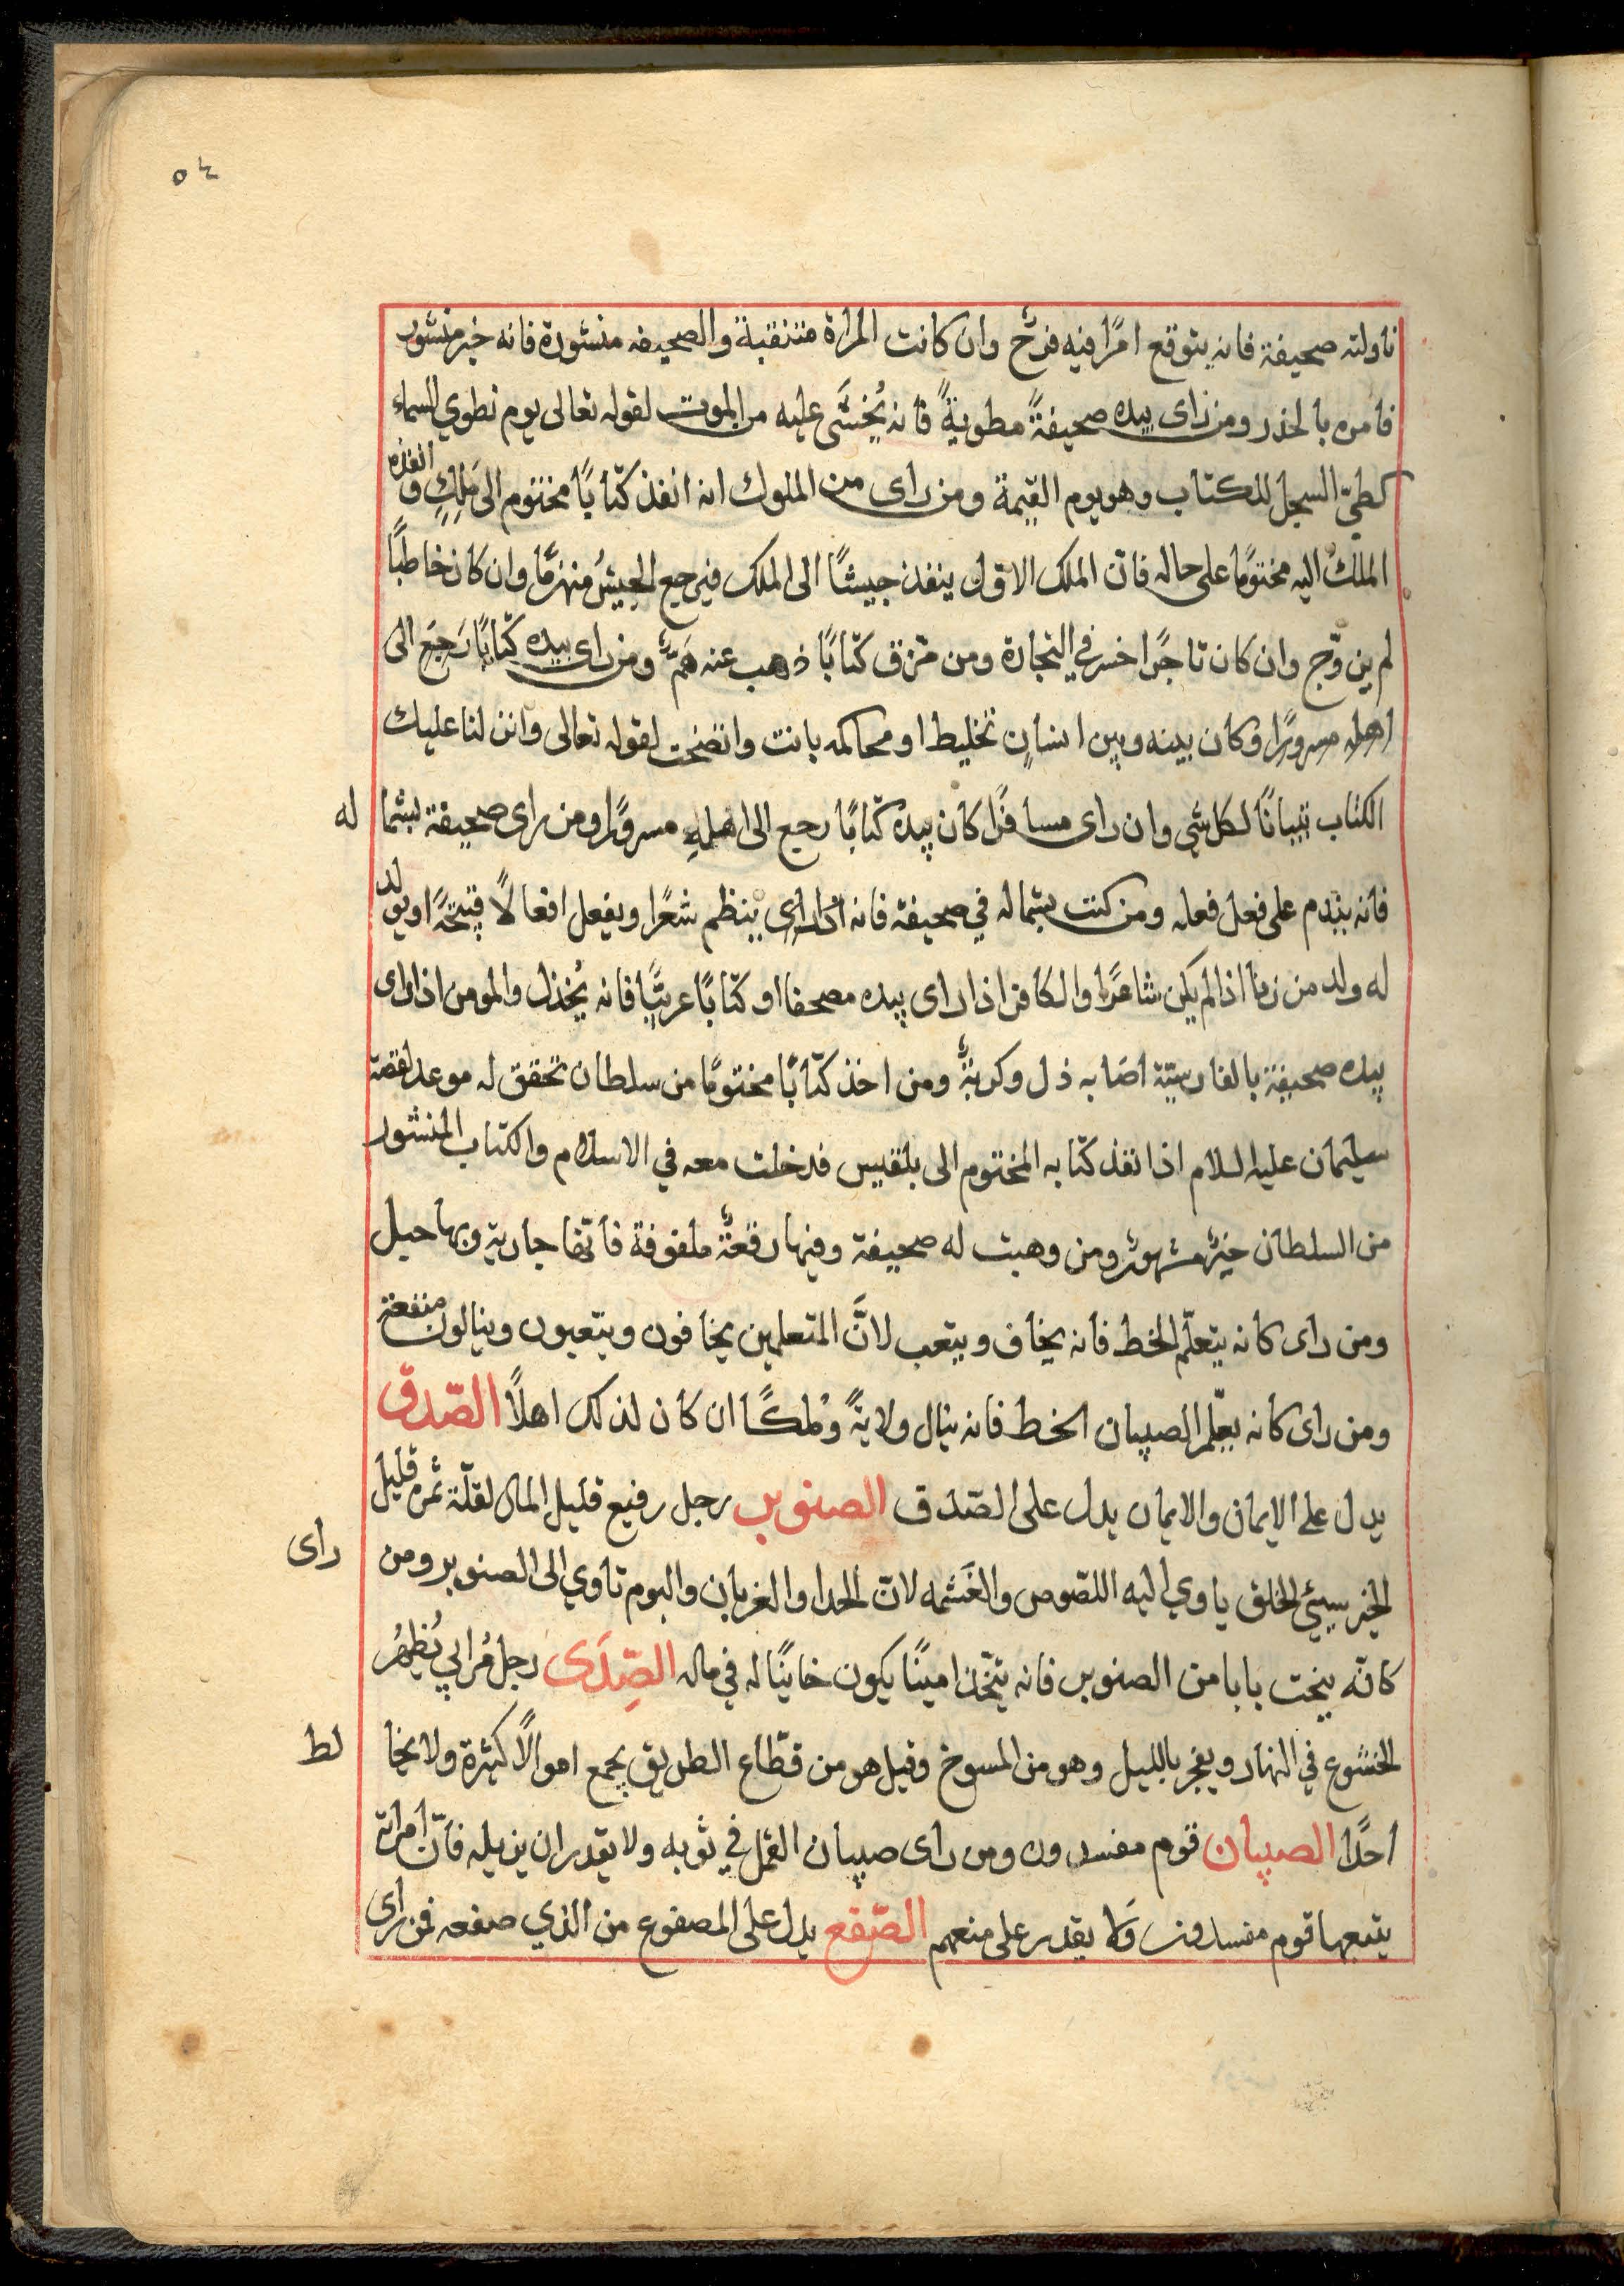 ٥٤
ناولته صحيفة فانه يتوقع امرًا فيه فرحٌ وان كانت المراة متنقبة والصحيفه منشورة فانه خبر منشور
فامره بالحذر ومن راى بيده صحيفةً مطويةً فانه يُخشَى عليه من الموت لقوله تعالى يوم نطوي السماء
كطيّ السجل للكتاب وهو يوم القيمة ومن راى من الملوك انه انفذ كتابًا مختوم الى مَلِكٍ وانفذه
الملكُ اليه مختومًا على حاله فان الملك الاول ينفذ جيشًا الى الملك فيرجع الجيشُ منهزمًا وان كان خاطبًا
لم يزوّج وان كان تاجرًا خسر في التجارة ومن مزق كتابًا ذهب عنه همّه ومن راى بيده كتابًا رَجَع الى
اهله مسرورًا وكان بينه وبين انسانٍ تخليط او محاكمه بانت واتضحت لقوله تعالى وانزلنا عليك
الكتاب تبيانًا لكل شي وان راى مسافرًا كان بيده كتابًا رجع الى اهلهِ مسرورًا ومن راى صحيفة بشما له
فانه يندم على فعل فعله ومن كتب بشماله في صحيفة فانه اذا راى ينظم شعرًا ويفعل افعالًا قبيحةً او يولد
له ولد من زنا اذا لم يكن شاعرًا والكافر اذا راى بيده مصحفا او كتابًا عربيًّا فانه يُخذل والمومن اذا راى
بيده صحيفة بالفارسيّة اصابه ذل وكربةٌ ومن اخذ كتابًا مختومًا من سلطان تحقق له موعد لقصة
سليمان عليه السلام اذا نفذ كتابه المختوم الى بلقيس فدخلت معه في الاسلام والكتاب المنشور
من السلطان خبرٌ مشهورٌ ومن وهبت له صحيفة وفيها رقعةٌ ملفوفة فانها جارية وبها حبل
ومن راى كانه يتعلّم الخط فانه يخاف ويتعب لانَّ المتعلمين يخافون ويتعبون وينالون منفعة
ومن راى كانه يعلّم الصبيان الخط فانه ينال ولايةً ومُلكًا ان كان لذلك اهلًا الصّدق
يدل على الايمان والايمان يدل على الصّدق الصنوبر رجل رفيع قليل المال لقلّة ثمره قليل
الخير سيئ الخلق ياوي اليه اللصوص والغَشمه لان الحدا والغربان والبوم تاوي الى الصنوبر ومن راى
كانه ينحت بابا من الصنوبر فانه يتّخذ امينًا يكون خاينًا له في ماله الصّدَى رجل مُرايي يُظهرُ
الخشوع في النهار ويفجر بالليل وهو من المسوخ وقيل هو من قطّاع الطريق يجمع اموالًا كثيرة ولا يخا لط
احدًا الصيبان قوم مفسدون ومن راى صيبان القمل في ثوبه ولا يقدر ان يزيله فان امراته
يتبعها قوم مفسدون ولا يقدر على منعهم الصّفع يدل على المصفوع من الذي صفعه فمن راى